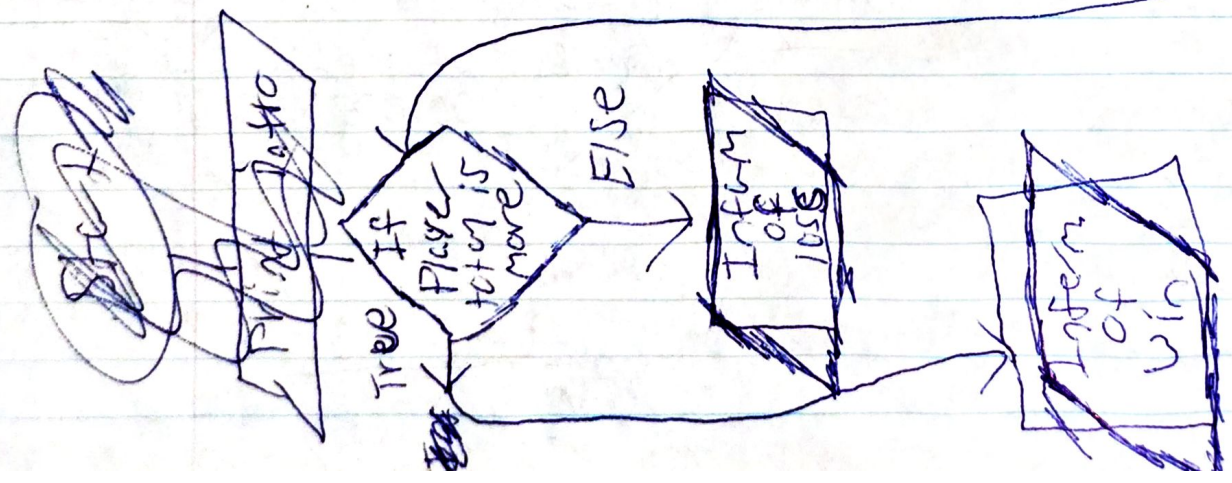 Start
Print Intro
If
Player
totul is
more
Else
Tree
Inform
of
lose
Inform
of
win